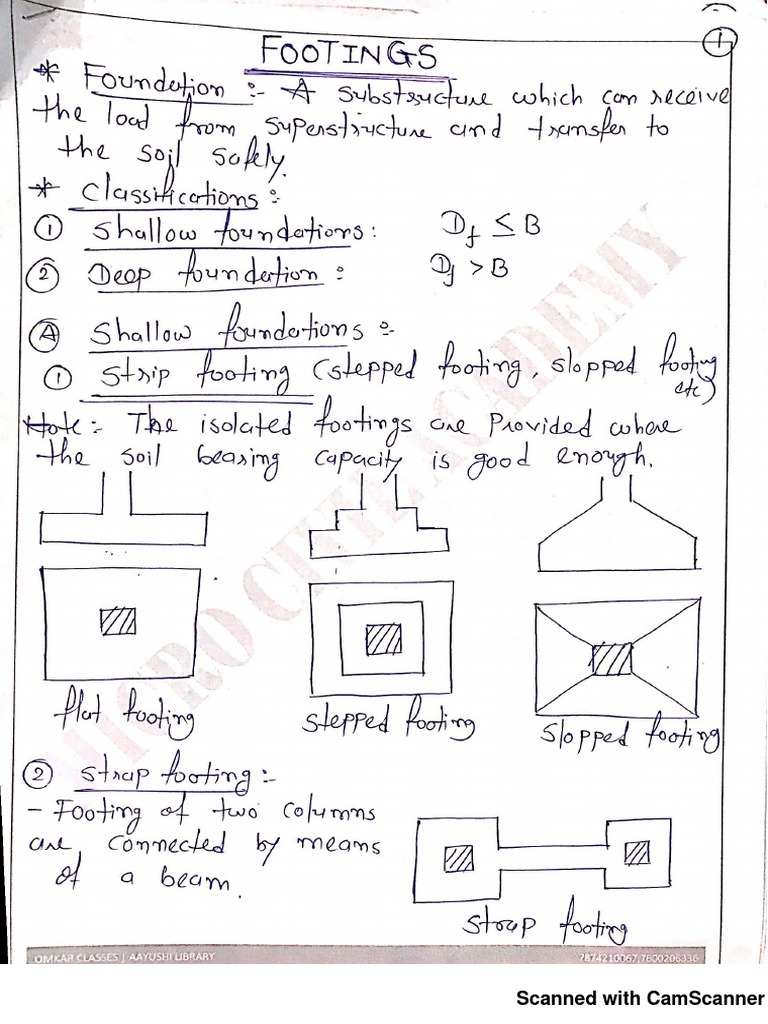 1
FOOTINGS
* Foundation :- A substructure which can receive
the load from superstructure and transfer to
the soil safely.
* Classifications :-
① Shallow foundations : Df ≤ B
② Deep foundation : Df > B
Ⓐ Shallow foundations :-
① Strip footing (stepped footing, slopped footing
etc)
Note :- The isolated footings are Provided where
the soil bearing capacity is good enough.
flat footing
stepped footing
slopped footing
② Strap footing :-
- Footing of two columns
are connected by means
of a beam.
strap footing
MICRO CIVIL ACADEMY
OMKAR CLASSES | AAYUSHI LIBRARY 7874210067,7600206336
Scanned with CamScanner